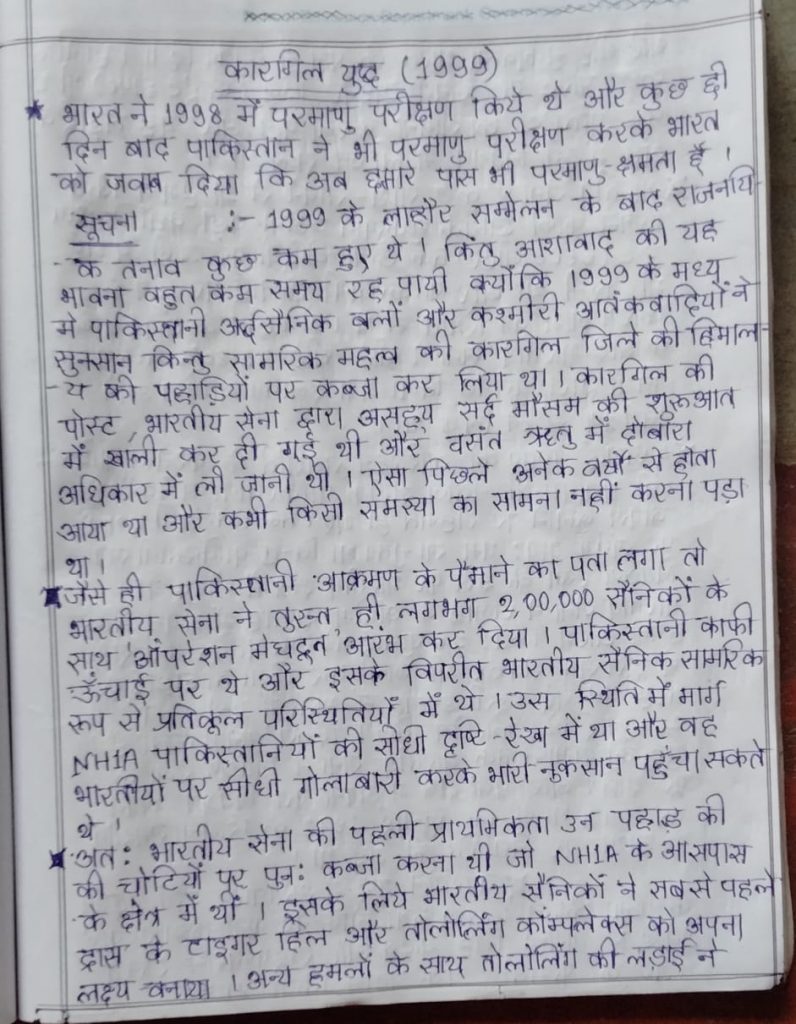 कारगिल युद्ध (1999)
★ भारत ने 1998 में परमाणु परीक्षण किये थे और कुछ ही
दिन बाद पाकिस्तान ने भी परमाणु परीक्षण करके भारत
को जवाब दिया कि अब हमारे पास भी परमाणु-क्षमता है ।
सूचना :- 1999 के लाहौर सम्मेलन के बाद राजनयि-
-क तनाव कुछ कम हुए थे । किंतु आशावाद की यह
भावना बहुत कम समय रह पायी क्योंकि 1999 के मध्य
मे पाकिस्तानी अर्द्धसैनिक बलों और कश्मीरी आतंकवादियों ने
सुनसान किन्तु सामरिक महत्व की कारगिल जिले की हिमाल-
-य की पहाड़ियों पर कब्जा कर लिया था। कारगिल की
पोस्ट, भारतीय सेना द्वारा असहय सर्द मौसम की शुरुआत
में खाली कर दी गई थी और वसंत ऋतु में दोबारा
अधिकार में ली जानी थी । ऐसा पिछले अनेक वर्षों से होता
आया था और कभी किसी समस्या का सामना नहीं करना पड़ा
था ।
★ जैसे ही पाकिस्तानी आक्रमण के पैमाने का पता लगा तो
भारतीय सेना ने तुरन्त ही लगभग 2,00,000 सैनिकों के
साथ 'ऑपरेशन मेघदूत' आरंभ कर दिया । पाकिस्तानी काफी
ऊँचाई पर थे और इसके विपरीत भारतीय सैनिक सामरिक
रूप से प्रतिकूल परिस्थितियों में थे । उस स्थिति में मार्ग
NH1A पाकिस्तानियों की सीधी दृष्टि-रेखा में था और वह
भारतीयों पर सीधी गोलाबारी करके भारी नुकसान पहुँचा सकते
थे ।
★ अत: भारतीय सेना की पहली प्राथमिकता उन पहाड़ की
की चोटियों पर पुन: कब्जा करना थी जो NH1A के आसपास
के क्षेत्र में थीं । इसके लिये भारतीय सैनिकों ने सबसे पहले
द्रास के टाइगर हिल और तोलोलिंग कॉम्पलेक्स को अपना
लक्ष्य बनाया । अन्य हमलों के साथ तोलोलिंग की लड़ाई ने